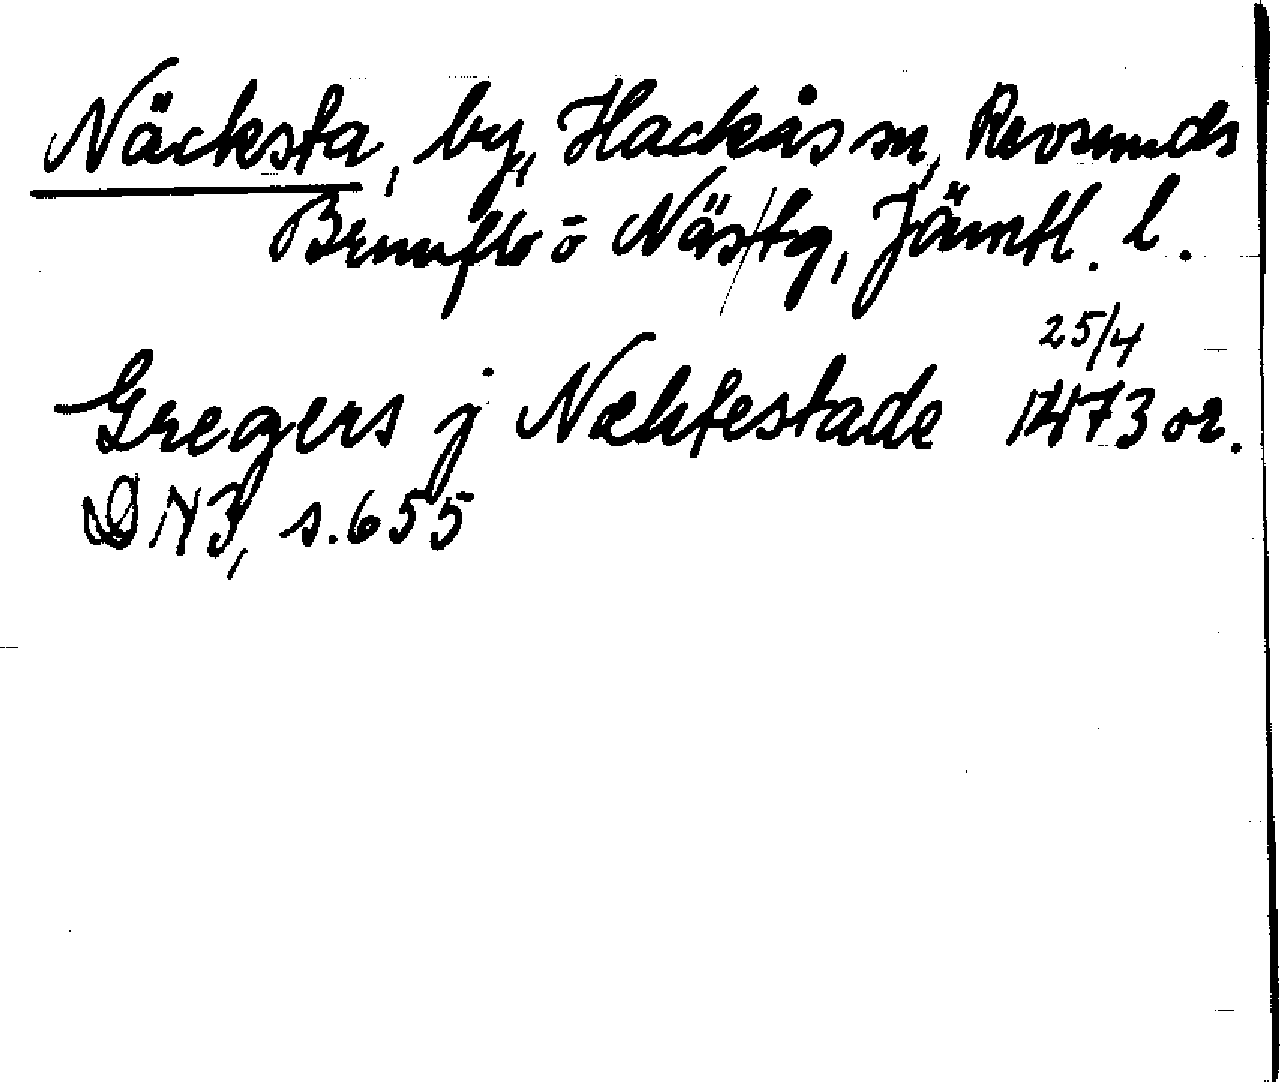 Näcksta, by, Hackås sn, Revsunds
Brunflo o Näs tg, Jämtl. l.
25/4
Gregers j Nækfestade 1473 or.
DN 3, s. 655